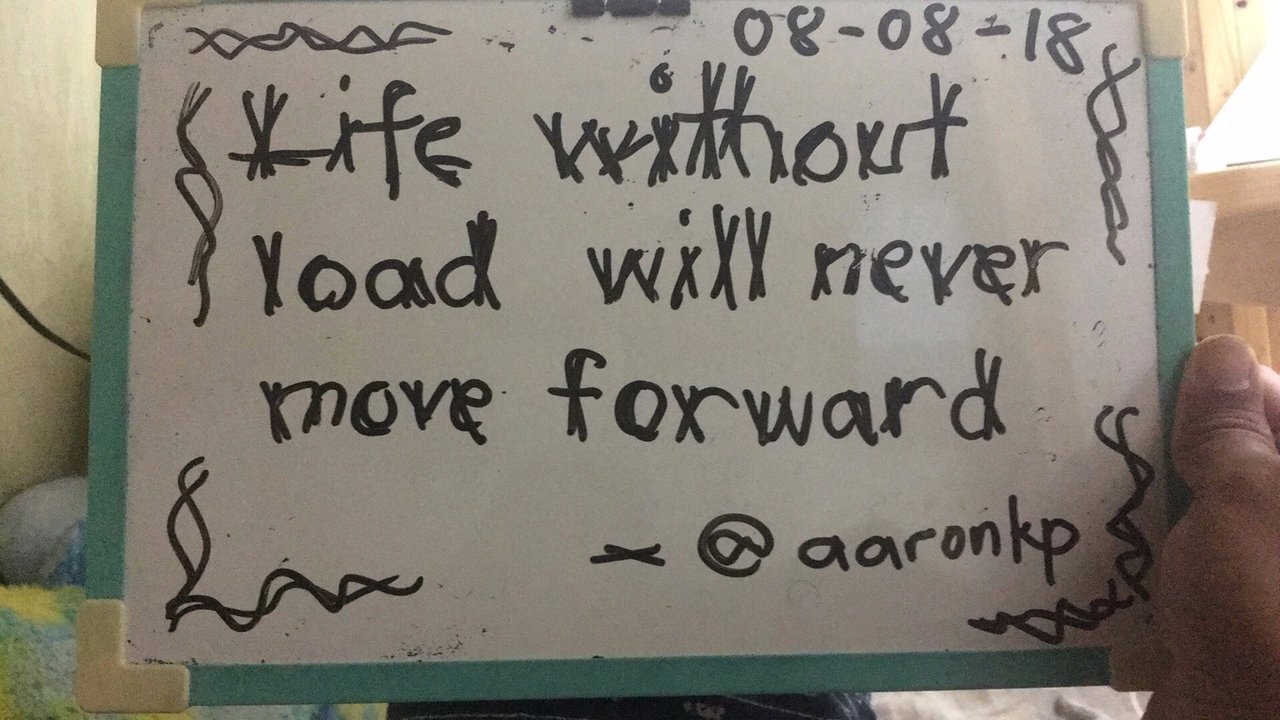 08-08-18
Life without
load will never
move forward
- @aaronkp